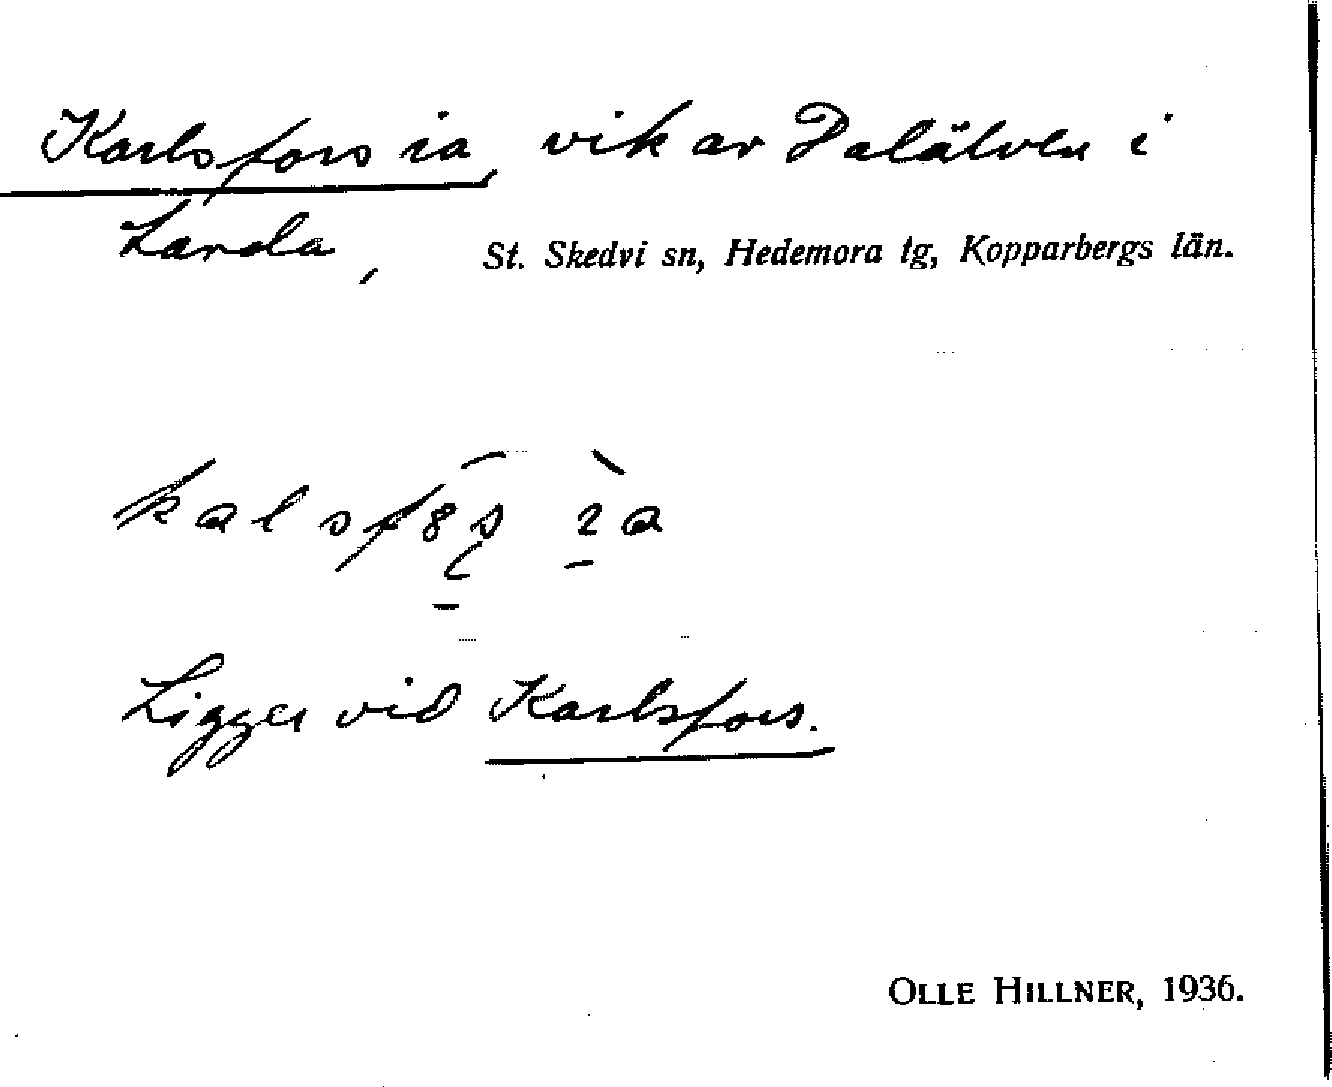 Karlsfors ia, vik av Dalälven i
Landa, St. Skedvi sn, Hedemora tg, Kopparbergs län.
Ligger vid Karlsfors.
OLLE HILLNER, 1936.